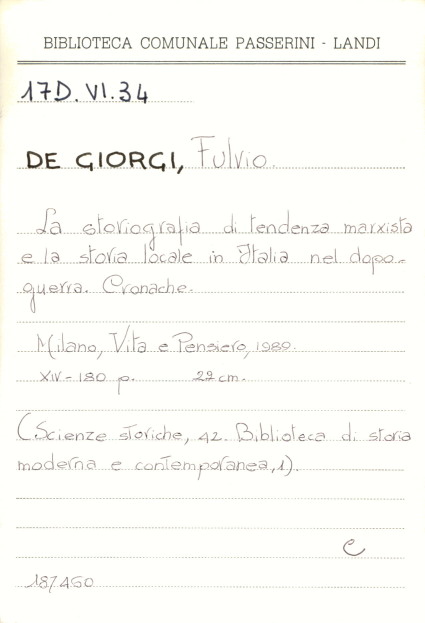 BIBLIOTECA COMUNALE PASSERINI - LANDI
17D.VI.34
DE GIORGI, Fulvio.
La storiografia di tendenza marxista
e la storia locale in Italia nel dopo-
guerra. Cronache.
Milano, Vita e Pensiero, 1989.
XIV-180 p. 22 cm.
(Scienze storiche, 42. Biblioteca di storia
moderna e contemporanea, 1).
C
187460